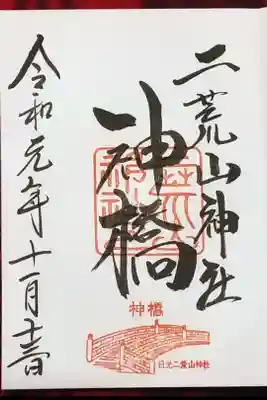 二荒山神社
神橋
令和元年十一月十三日
神橋
日光二荒山神社